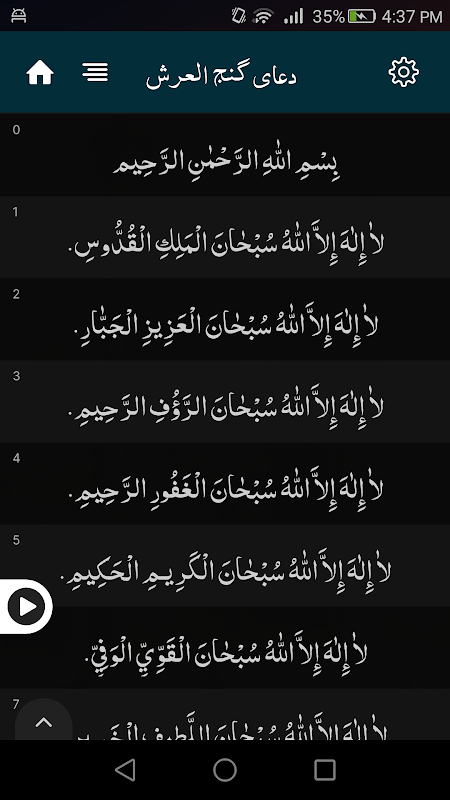 35% 4:37 PM
دعای گنج العرش
0
بِسْمِ اللهِ الرَّحْمٰنِ الرَّحِيم
1
لاٰ إِلٰهَ إِلاَّ اللهُ سُبْحٰانَ الْمَلِكِ الْقُدُّوسِ.
2
لاٰ إِلٰهَ إِلاَّ اللهُ سُبْحٰانَ الْعَزِيزِ الْجَبّٰارِ.
3
لاٰ إِلٰهَ إِلاَّ اللهُ سُبْحٰانَ الرَّؤُفِ الرَّحِيمِ.
4
لاٰ إِلٰهَ إِلاَّ اللهُ سُبْحٰانَ الْغَفُورِ الرَّحِيمِ.
5
لاٰ إِلٰهَ إِلاَّ اللهُ سُبْحٰانَ الْكَرِيمِ الْحَكِيمِ.
لاٰ إِلٰهَ إِلاَّ اللهُ سُبْحٰانَ الْقَوِّيِ الْوَفِيِّ.
7
لاٰ إِلٰهَ إِلاَّ اللهُ سُبْحٰانَ اللَّطِيفِ